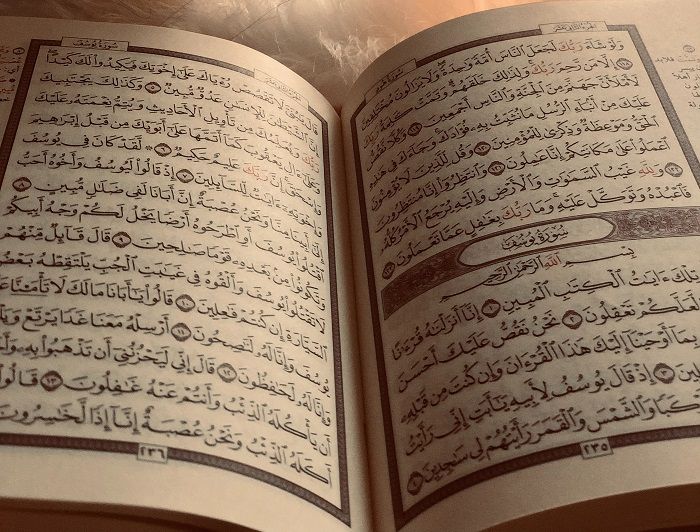 سُورَةُ هُودٍ
وَلَوْ شَآءَ رَبُّكَ لَجَعَلَ ٱلنَّاسَ أُمَّةً وَٰحِدَةً وَلَا يَزَالُونَ مُخْتَلِفِينَ
١١٨ إِلَّا مَن رَّحِمَ رَبُّكَ وَلِذَٰلِكَ خَلَقَهُمْ وَتَمَّتْ كَلِمَةُ رَبِّكَ
لَأَمْلَأَنَّ جَهَنَّمَ مِنَ ٱلْجِنَّةِ وَٱلنَّاسِ أَجْمَعِينَ ١١٩ وَكُلًّا نَّقُصُّ
عَلَيْكَ مِنْ أَنۢبَآءِ ٱلرُّسُلِ مَا نُثَبِّتُ بِهِۦ فُؤَادَكَ وَجَآءَكَ فِى هَٰذِهِ
ٱلْحَقُّ وَمَوْعِظَةٌ وَذِكْرَىٰ لِلْمُؤْمِنِينَ ١٢٠ وَقُل لِّلَّذِينَ لَا يُؤْمِنُونَ
ٱعْمَلُوا۟ عَلَىٰ مَكَانَتِكُمْ إِنَّا عَٰمِلُونَ ١٢١ وَٱنتَظِرُوٓا۟ إِنَّا مُنتَظِرُونَ
١٢٢ وَلِلَّهِ غَيْبُ ٱلسَّمَٰوَٰتِ وَٱلْأَرْضِ وَإِلَيْهِ يُرْجَعُ ٱلْأَمْرُ كُلُّهُۥ
فَٱعْبُدْهُ وَتَوَكَّلْ عَلَيْهِ وَمَا رَبُّكَ بِغَٰفِلٍ عَمَّا تَعْمَلُونَ ١٢٣
سُورَةُ يُوسُفَ
بِسْمِ ٱللَّهِ ٱلرَّحْمَٰنِ ٱلرَّحِيمِ
لْكَ ءَايَٰتُ ٱلْكِتَٰبِ ٱلْمُبِينِ ١ إِنَّآ أَنزَلْنَٰهُ قُرْءَٰنًا
لَّعَلَّكُمْ تَعْقِلُونَ ٢ نَحْنُ نَقُصُّ عَلَيْكَ أَحْسَنَ
بِمَآ أَوْحَيْنَآ إِلَيْكَ هَٰذَا ٱلْقُرْءَانَ وَإِن كُنتَ مِن قَبْلِهِۦ
لِينَ ٣ إِذْ قَالَ يُوسُفُ لِأَبِيهِ يَٰٓأَبَتِ إِنِّى رَأَيْتُ
كَبًا وَٱلشَّمْسَ وَٱلْقَمَرَ رَأَيْتُهُمْ لِى سَٰجِدِينَ ٤
٢٣٥
سُورَةُ يُوسُفَ
قَالَ يَٰبُنَىَّ لَا تَقْصُصْ رُءْيَاكَ عَلَىٰٓ إِخْوَتِكَ فَيَكِيدُوا۟ لَكَ كَيْدًا
إِنَّ ٱلشَّيْطَٰنَ لِلْإِنسَٰنِ عَدُوٌّ مُّبِينٌ ٥ وَكَذَٰلِكَ يَجْتَبِيكَ
رَبُّكَ وَيُعَلِّمُكَ مِن تَأْوِيلِ ٱلْأَحَادِيثِ وَيُتِمُّ نِعْمَتَهُۥ عَلَيْكَ
وَعَلَىٰٓ ءَالِ يَعْقُوبَ كَمَآ أَتَمَّهَا عَلَىٰٓ أَبَوَيْكَ مِن قَبْلُ إِبْرَٰهِيمَ
وَإِسْحَٰقَ إِنَّ رَبَّكَ عَلِيمٌ حَكِيمٌ ٦ ۞ لَّقَدْ كَانَ فِى يُوسُفَ
وَإِخْوَتِهِۦٓ ءَايَٰتٌ لِّلسَّآئِلِينَ ٧ إِذْ قَالُوا۟ لَيُوسُفُ وَأَخُوهُ أَحَبُّ
إِلَىٰٓ أَبِينَا مِنَّا وَنَحْنُ عُصْبَةٌ إِنَّ أَبَانَا لَفِى ضَلَٰلٍ مُّبِينٍ ٨
ٱقْتُلُوا۟ يُوسُفَ أَوِ ٱطْرَحُوهُ أَرْضًا يَخْلُ لَكُمْ وَجْهُ أَبِيكُمْ
وَتَكُونُوا۟ مِنۢ بَعْدِهِۦ قَوْمًا صَٰلِحِينَ ٩ قَالَ قَآئِلٌ مِّنْهُمْ
لَا تَقْتُلُوا۟ يُوسُفَ وَأَلْقُوهُ فِى غَيَٰبَتِ ٱلْجُبِّ يَلْتَقِطْهُ بَعْضُ
ٱلسَّيَّارَةِ إِن كُنتُمْ فَٰعِلِينَ ١٠ قَالُوا۟ يَٰٓأَبَانَا مَالَكَ لَا تَأْمَ۫نَّا
يُوسُفَ وَإِنَّا لَهُۥ لَنَٰصِحُونَ ١١ أَرْسِلْهُ مَعَنَا غَدًا يَرْتَعْ وَيَلْ
وَإِنَّا لَهُۥ لَحَٰفِظُونَ ١٢ قَالَ إِنِّى لَيَحْزُنُنِىٓ أَن تَذْهَبُوا۟ بِهِۦ وَأَ
أَن يَأْكُلَهُ ٱلذِّئْبُ وَأَنتُمْ عَنْهُ غَٰفِلُونَ ١٣ قَالُوا۟
أَكَلَهُ ٱلذِّئْبُ وَنَحْنُ عُصْبَةٌ إِنَّآ إِذًا لَّخَٰسِرُونَ
٢٣٦